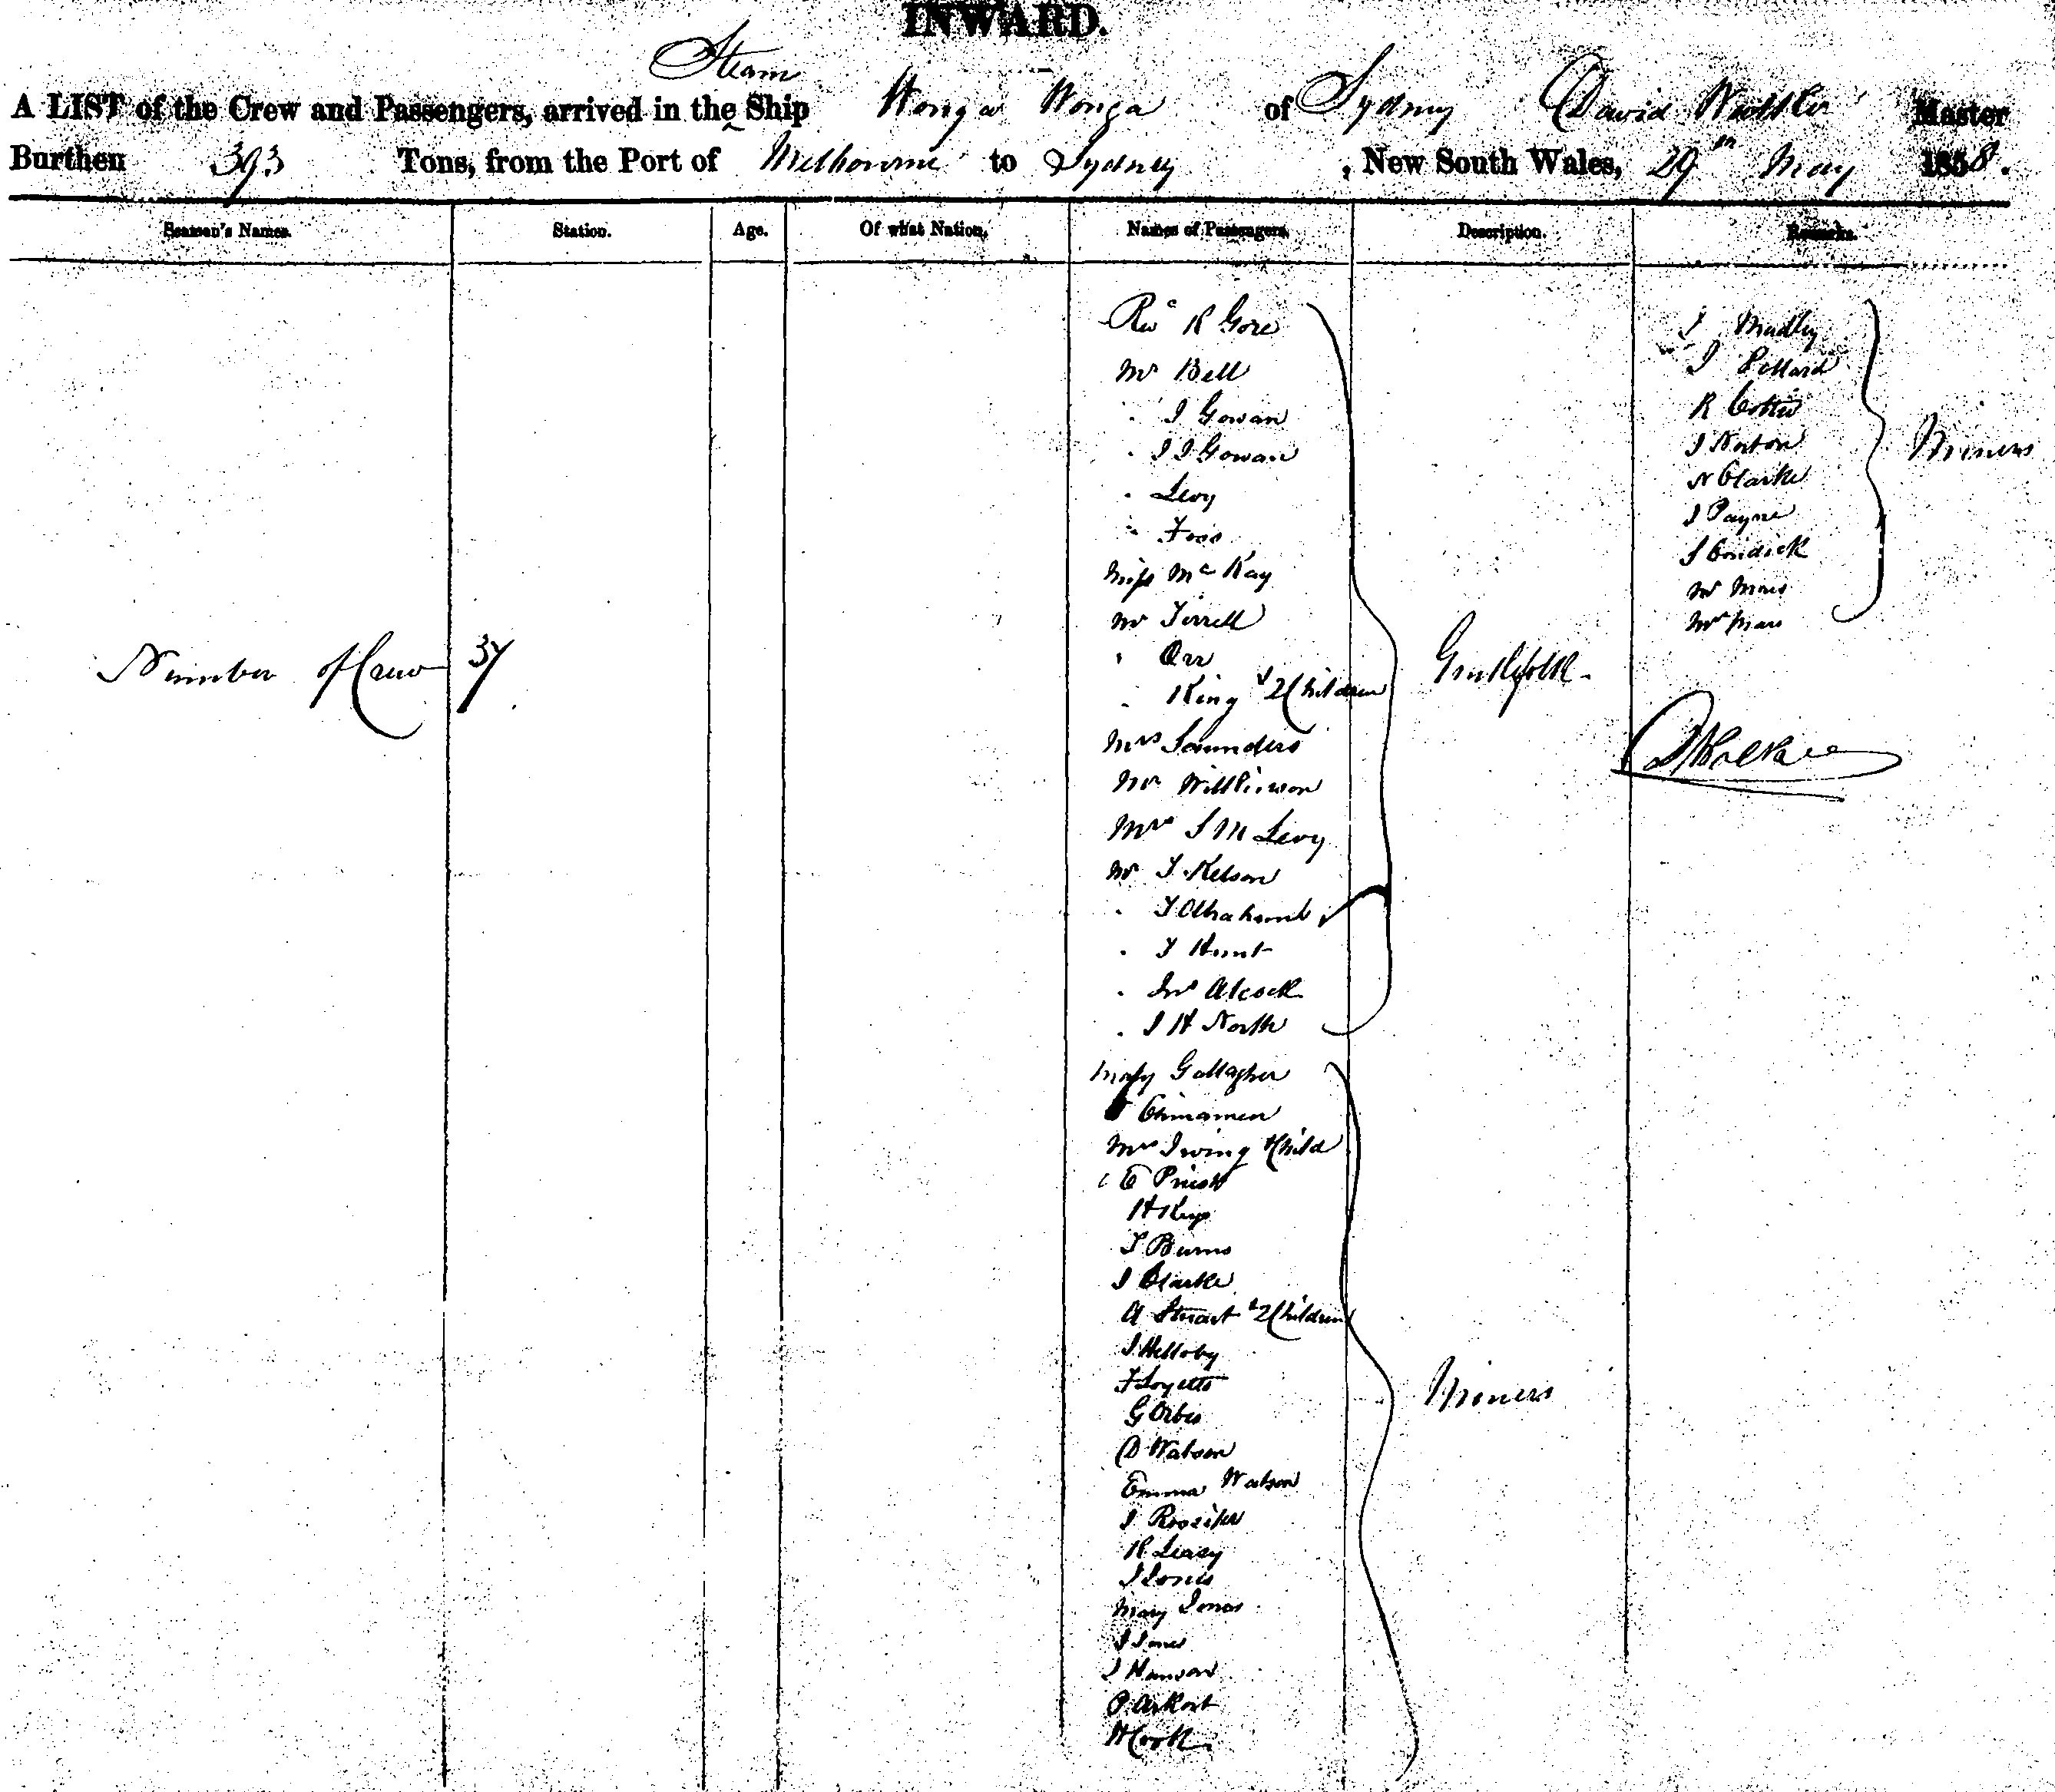 INWARD.
Steam
A LIST of the Crew and Passengers, arrived in the Ship Wonga Wonga of Sydney David Master
Burthen 393 Tons, from the Port of Melbourne to Sydney, New South Wales, 29th May 1858.
Seamen's Names. Station. Age. Of what Nation. Names of Passengers. Description. Remarks.
Number of Crew 37
Revd R Gore
Mr Bell
" J Gowan
" J J Gowan
" Levy
" Foss
Miss McKay
Mr Terrell
" Orr
" King & 2 Children
Mrs Saunders
Mr Wilkinson
Mrs S M Levy
Mr T Nelson
" T Abrahams
" T Hunt
" Jno Alcock
" J H North
Gentlefolk
Mary Gallagher
Chinamen
Mrs Irving & Child
E Priest
H Keys
T Burns
J Clarke
A Stuart & 2 Children
J Helloby
G Orbes
D Watson
Emma Watson
J
R Leasy
J Jones
Mary Jones
J Jones
J Hanson
P
W Cook
Miners
J
J Pollard
R
J Norton
N Clarke
J Payne
J
Mr
Mr
Miners